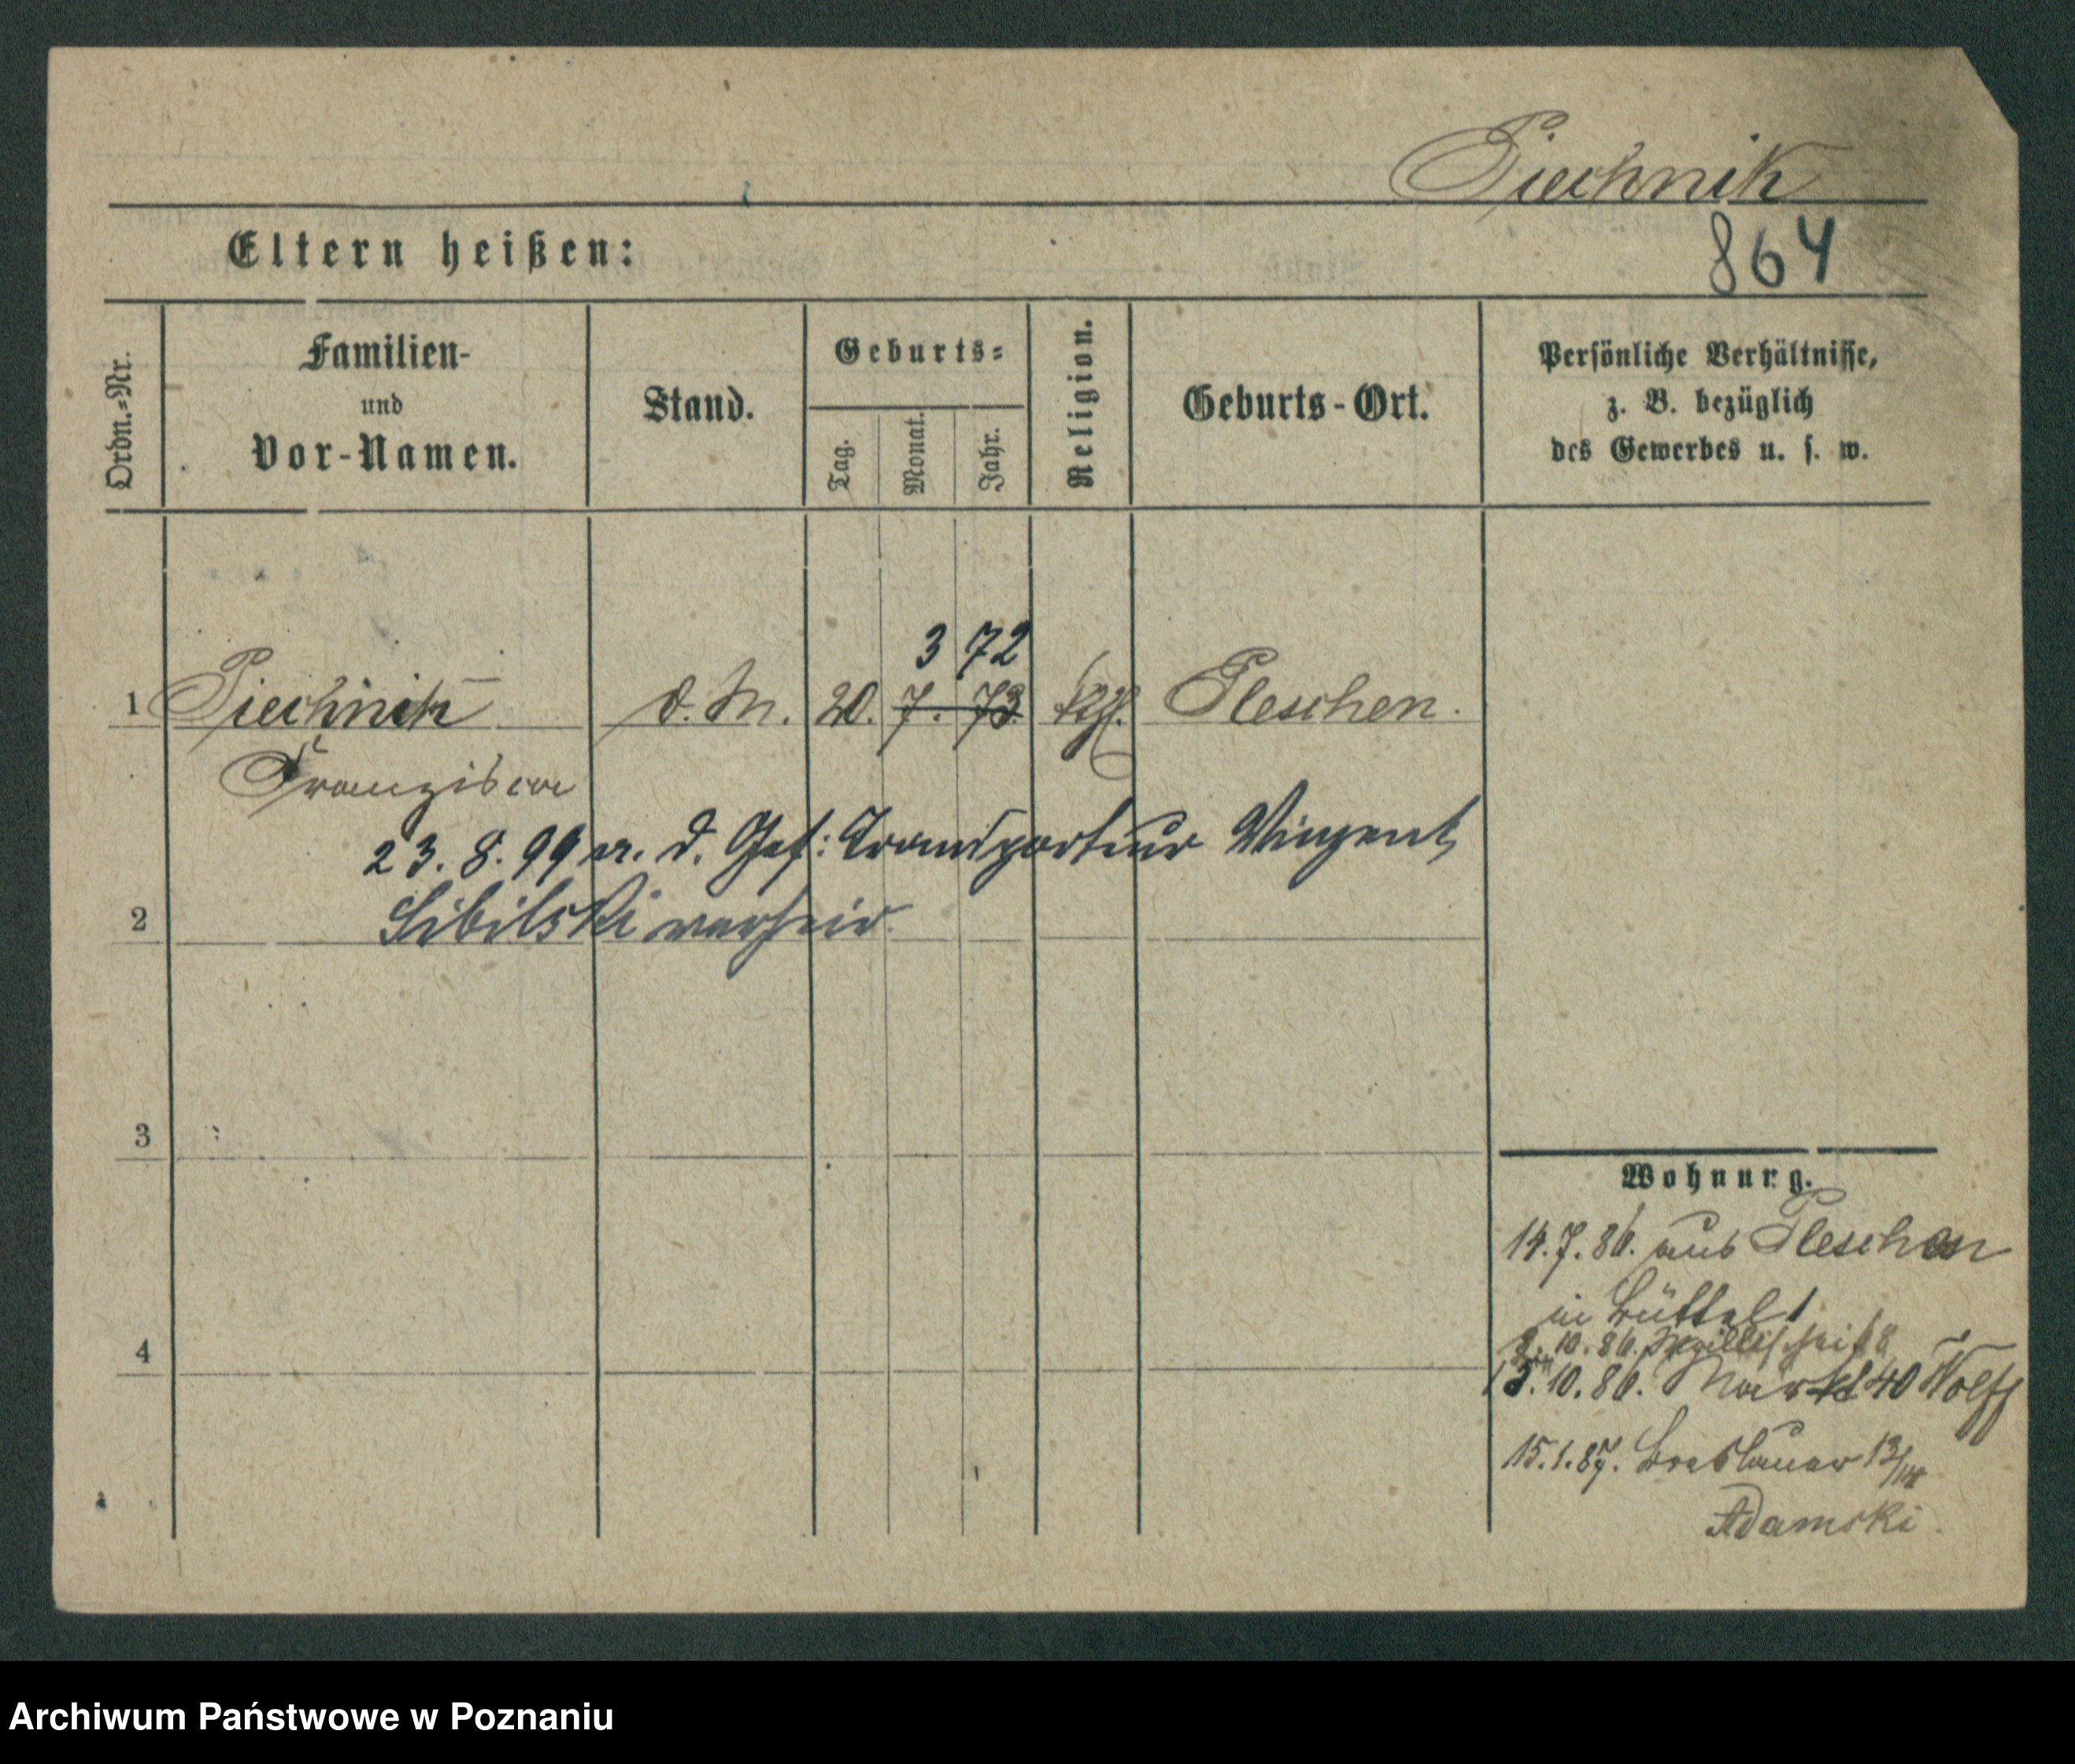 Piechnik
864
Eltern heißen:
Ordn.=Nr.
Familien-
und
Vor-Namen.
Stand.
Geburts=
Tag.
Monat.
Jahr.
Religion.
Geburts-Ort.
Persönliche Verhältnisse,
z. B. bezüglich
des Gewerbes u. s. w.
3 72
1 Piechnik d. M. 20. 7. 73 Pleschen.
Franzisca
23. 8. 99 d. Transporteur Vinzent
2 Sibilski verheir.
3
4
Wohnung.
14. 7. 86. aus Pleschen
in Büttel 1
10. 86. 8
13. 10. 86. Markt 40 Wolff
15. 1. 87. Breslauer 13/14
Adamski.
Archiwum Państwowe w Poznaniu